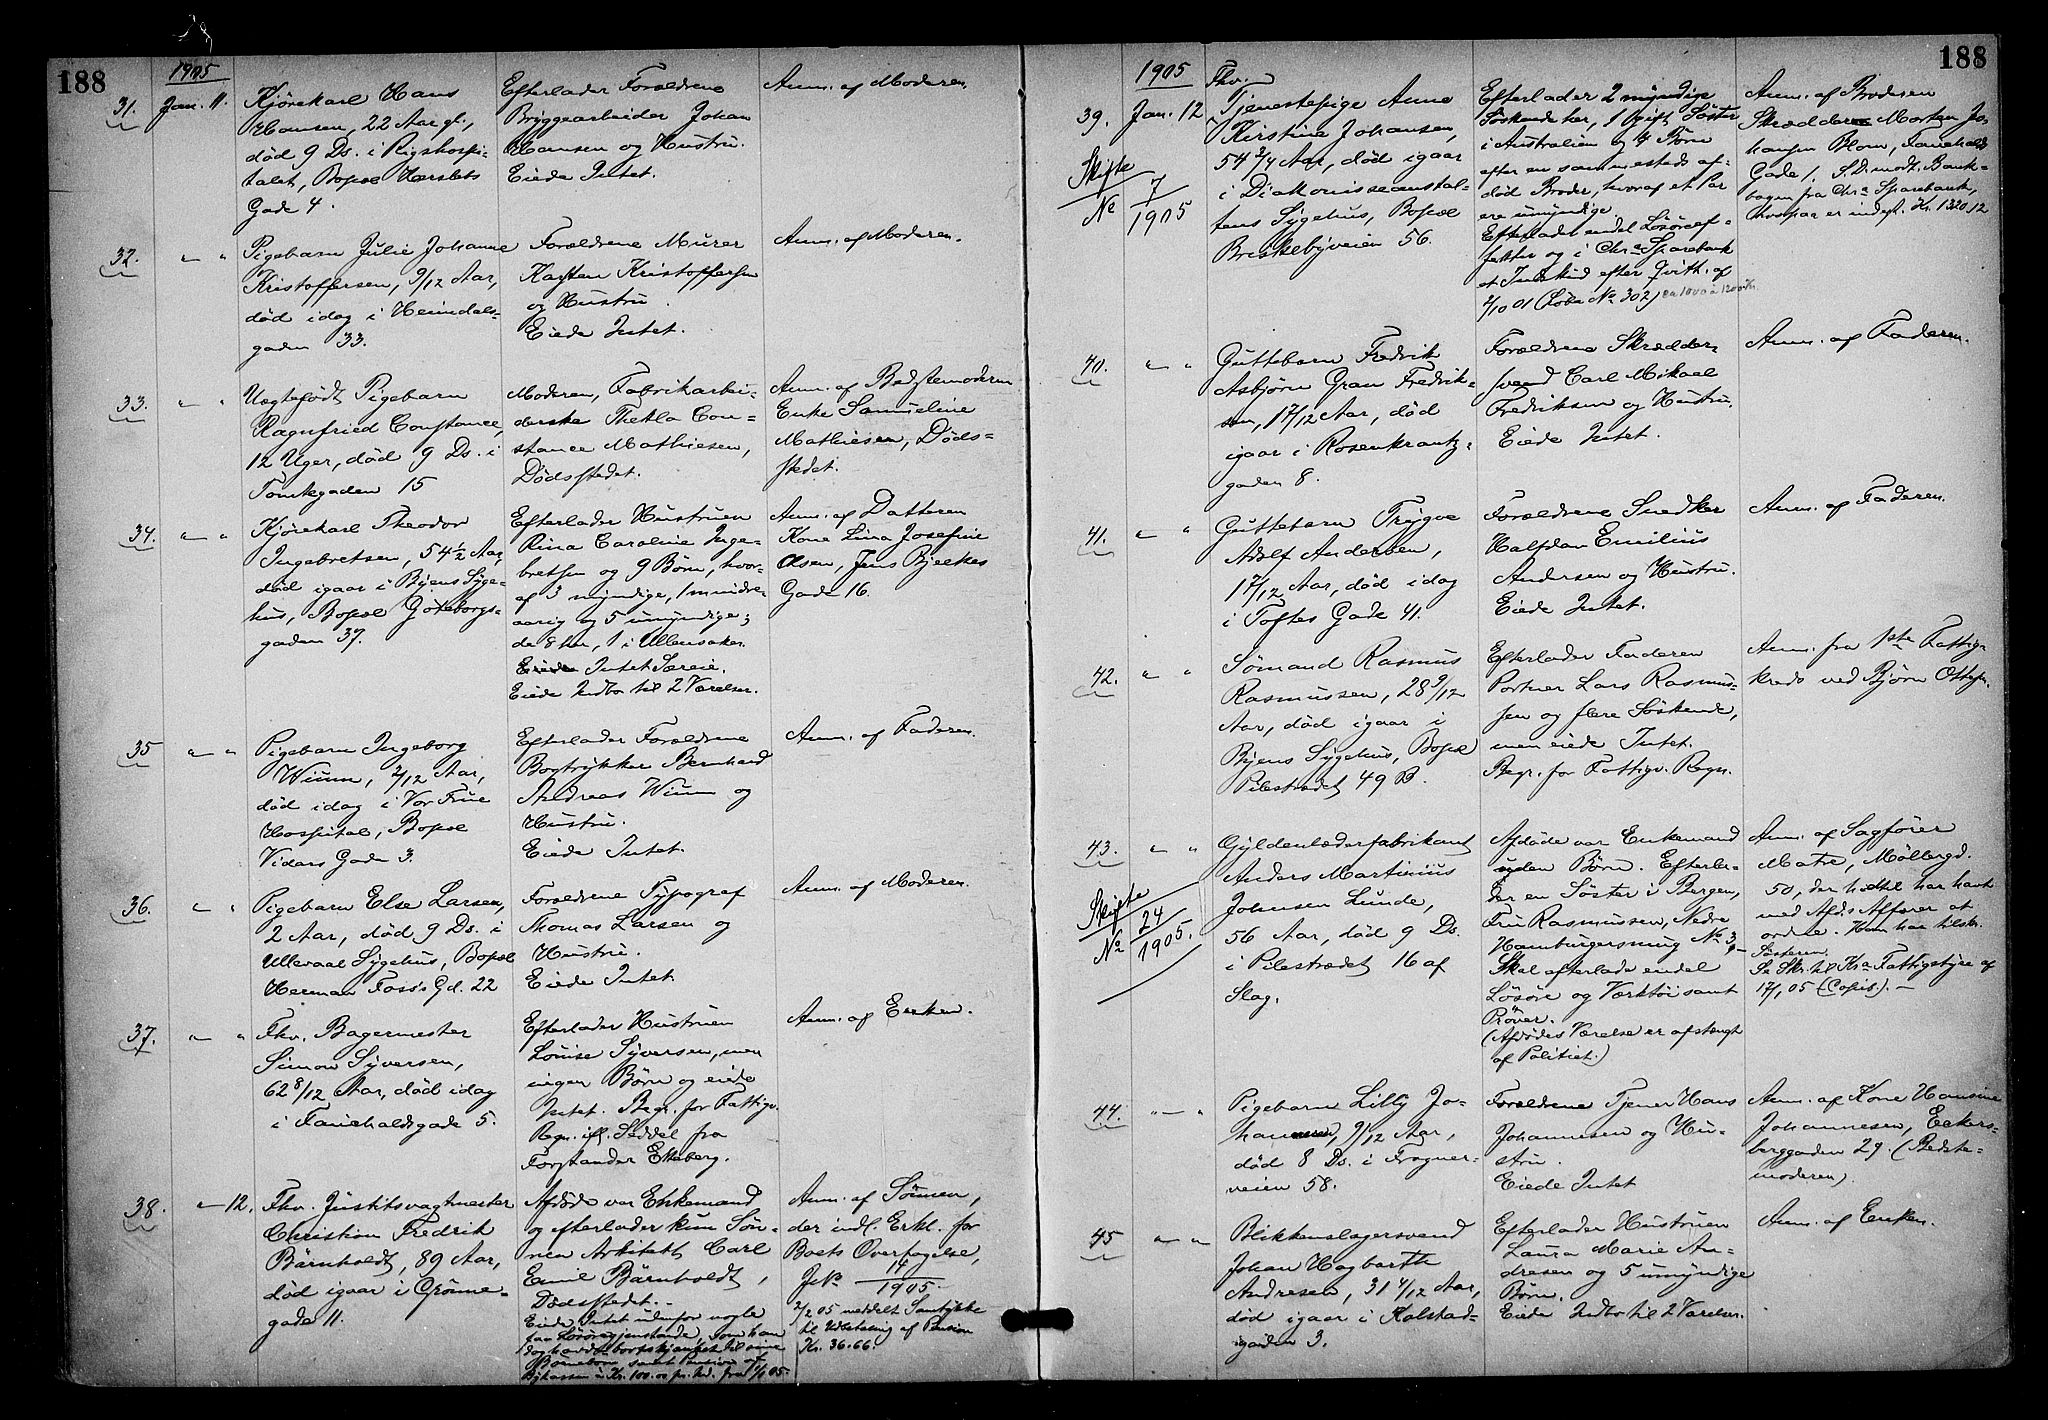 188
1905
31.
Jan. 11.
Kjørekarl Hans
Hansen, 22 Aar gl.,
død 9 Ds. i Rigshospi-
talet, Bopæl Herslebs
Gade 4.
Efterlader Forældrene
Bryggearbeider Johan
Hansen og Hustru.
Eiede Intet.
Anm. af Moderen.
32.
" "
Pigebarn Julie Johanne
Kristoffersen, 9/12 Aar,
død idag i Heimdals-
gaden 33.
Forældrene Murer
Karsten Kristoffersen
og Hustru.
Eiede Intet.
Anm. af Moderen.
33.
" "
Uægtefødt Pigebarn
Ragnfried Constance,
12 Uger, død 9 Ds. i
Tomtegaden 15
Moderen, Fabrikarbei-
derske Thekla Con-
stance Mathiesen,
Dødsstedet.
Anm. af Bedstemoderen
Enke Samueline
Mathiesen, Døds-
stedet.
34.
" "
Kjørekarl Theodor
Ingebretsen, 54 1/2 Aar,
død igaar i Byens Syge-
hus, Bopæl Göteborgs-
gaden 37.
Efterlader Hustruen
Rina Caroline Inge-
bretsen og 9 Børn, hvor-
af 3 myndige, 1 mindre-
aarig og 5 umyndige;
de 8 her, 1 i Ullensaker.
Eiede Intet Særeie.
Eiede Indbo til 2 Værelser.
Anm. af Datteren
Kone Lina Josefine
Olsen, Jens Bjelkes
Gade 16.
35
" "
Pigebarn Ingeborg
Wium, 2/12 Aar,
død idag i Vor Frue
Hospital, Bopæl
Vidars Gade 3.
Efterlader Forældrene
Bogtrykker Bernhard
Andreas Wium og
Hustru.
Eiede Intet.
Anm. af Faderen.
36.
" "
Pigebarn Else Larsen,
2 Aar, død 9 Ds. i
Ullevaal Sygehus, Bopæl
Herman Foss's Gd. 22
Forældrene Typograf
Thomas Larsen og
Hustru.
Eiede Intet.
Anm. af Moderen.
37.
" "
Fhv. Bagermester
Simon Syversen,
62 8/12 Aar, død idag
i Fauchaldsgade 5.
Efterlader Hustruen
Louise Syversen, men
ingen Børn og eiede
Intet. Begr. for Fattigv.
Regn. ifl. Seddel fra
Forstander Ekeberg.
Anm. af Enken.
38.
" 12.
Fhv. Justitsvagtmester
Christian Fredrik
Bärnholdt, 89 Aar,
død igaar i Grønne-
gade 11.
Afdøde var Enkemand
og efterlader kun Søn-
nen Arkitekt Carl
Emil Bärnholdt,
Dødsstedet.-
Eiede Intet udenfor nogle
faa Løsøregjenstande, som han
dog havde bortskjænket til sine
Børnebørn samt Pension af
Bykassen à Kr. 100.00 pr. Md. fra 1/1 05.
Anm. af Sønnen,
der indl. Erkl. for
Boets Overtagelse,
J.No 14/1905.
2/2 05 meddelt Samtykke
til Udbetaling af Pension
Kr. 36.66.
188
1905
39.
Jan. 12
Skifte
No 7/1905
Fhv.
Tjenestepige Anne
Kirstine Johansen,
54 3/4 Aar, død igaar
i Diakonisseanstal-
tens Sygehus, Bopæl
Briskebyveien 56.
Efterlader 2 myndige
Søskende her, 1 gift Søster
i Australien og 4 Børn
efter en sammesteds af-
død Broder, hvoraf et Par
ere umyndige
Efterladt endel Løsøreef-
fekter og i Chra Sparebank
et Indskud efter Qvitt. af
2/10 01 (Løbe No 302) ca 1000 à 1200 Kr.
Anm. af Broderen
Skrædder Morten Jo-
hansen Blom, Fauchalds
Gade 1, S.D. modt. Bank-
bogen fra Chra Sparebank,
hvorpaa er indest. Kr. 1320.12
40.
" "
Guttebarn Fredrik
Asbjørn Gran Fredrik-
sen, 1 7/12 Aar, død
igaar i Rosenkrantz-
gaden 8.
Forældrene Skrædder-
svend Carl Mikael
Fredriksen og Hustru.
Eiede Intet.
Anm. af Faderen.
41.
" "
Guttebarn Trygve
Adolf Andersen,
1 7/12 Aar, død idag
i Toftes Gade 41.
Forældrene Snedker
Halfdan Emilius
Andersen og Hustru.
Eiede Intet.
Anm. af Faderen.
42.
" "
Sømand Rasmus
Rasmussen, 28 9/12
Aar, død igaar i
Byens Sygehus, Bopæl
Pilestrædet 49 B.
Efterlader Faderen
Portner Lars Rasmus-
sen og flere Søskende,
men eiede Intet.
Begr. for Fattigv. Regn.
Anm. fra 1ste Fattig-
kreds ved Bjørn Ottesen.
43.
" "
Skifte
No 24/1905.
Gyldenlæderfabrikant
Anders Martinius
Johnsen Lunde,
56 Aar, død 9 Ds.
i Pilestrædet 16 af
Slag.
Afdøde var Enkemand
uden Børn. Efterla-
der en Søster i Bergen,
Fru Rasmussen, Nedre
Hamburgersmug No 3,-
Skal efterlade endel
Løsøre og Værktøi samt
Prøver.
(Afdødes Værelse er afstængt
af Politiet.)
Anm. af Sagfører
Matre, Møllergd.
50, der hidtil har havt
med Afd.s Affærer at
ordne. Han har tilskr.
Søsteren.
Se Skr. til Kra Fattigstyre af
17/1 05 (Copib.).-
44.
" "
Pigebarn Lilly Jo-
hannesen, 9/12 Aar,
død 8 Ds. i Frogner-
veien 58.
Forældrene Tjener Hans
Johannesen og Hu-
stru.
Eiede Intet
Anm. af Kone Hansine
Johannesen, Eckers-
berggaden 29. (Bedste-
moderen).
45
" "
Blikkenslagersvend
Johan Hagbarth
Andresen, 31 4/12 Aar,
død igaar i Kolstad-
gaden 3.
Efterlader Hustruen
Laura Marie An-
dresen og 5 umyndige
Børn.
Eiede Indbo til 2 Værelser.
Anm. af Enken.